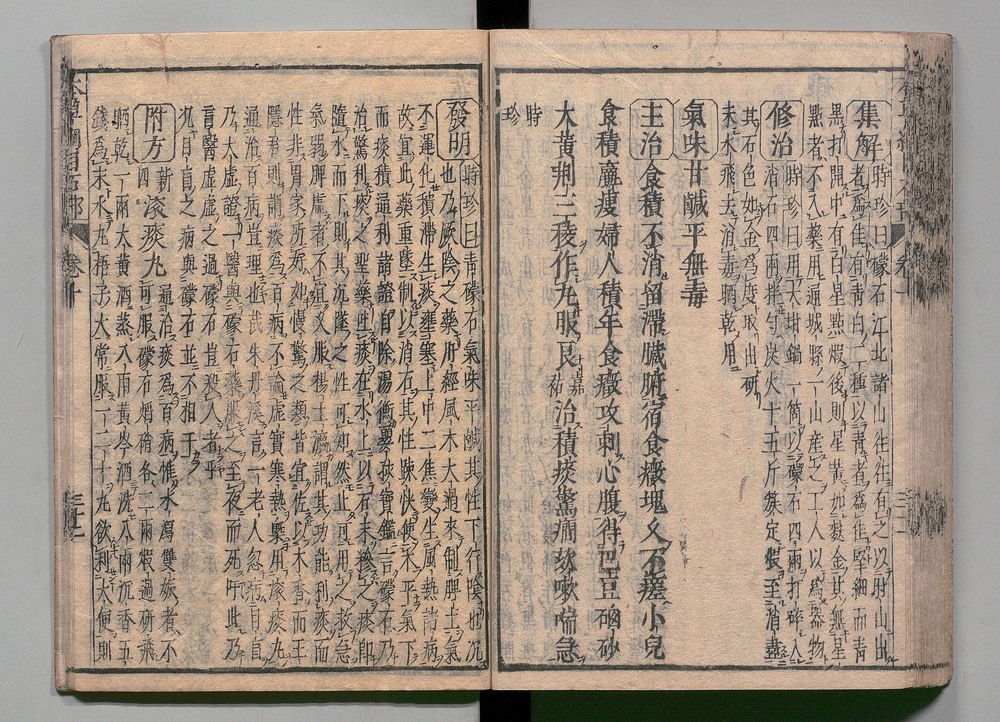 集解時珍曰礞石江北諸山往往有之以旴山出
者爲佳有青白二種以青者爲佳堅細而青
黑打開中有白星點煅後則星黃如麩金其無星
點者不入藥用通城縣一山産之工人以爲器物
修治時珍曰用大坩鍋一箇以礞石四兩打碎入
消石四兩拌匀炭火十五斤簇定煅至消盡
其石色如金爲度取出研
末水飛去消毒晒乾用
氣味甘鹹平無毒
主治食積不消留滯臟腑宿食癥塊久不瘥小兒
食積羸瘦婦人積年食癥攻刺心腹得巴豆硇砂
大黃荆三稜作丸服良嘉祐治積痰驚癎欬嗽喘急
時珍
發明時珍曰青礞石氣味平鹹其性下行陰也沉
也乃厥陰之藥肝經風木太過來制脾土氣
不運化積滯生痰壅塞上中二焦變生風熱諸病
故宜此藥重墜制以消石其性踈快使木平氣下
而痰積通利諸證自除湯衡嬰孩寶鑑言礞石乃
治驚利痰之聖藥吐痰在水上以石末糝之痰即
隨水而下則其沉墜之性可知然止可用之救急
氣弱脾虛者不宜久服楊士瀛謂其功能利痰而
性非胃家所好如慢驚之類皆宜佐以木香而王
隱君則謂痰爲百病不論虛實寒熱槩用滾痰丸
通治百病豈理也哉朱丹溪言一老人忽病目盲
乃大虛證一醫與礞石藥服之至夜而死吁此乃
盲醫虛虛之過礞石豈殺人者乎
况目盲之病與礞石並不相干
附方新四滾痰丸通治痰爲百病惟水瀉雙娠者不
可服礞石焇硝各二兩煅過研飛
晒乾一兩大黃酒蒸八兩黃芩酒洗八兩沉香五
錢爲末水丸梧子大常服一二十丸欲利大便則